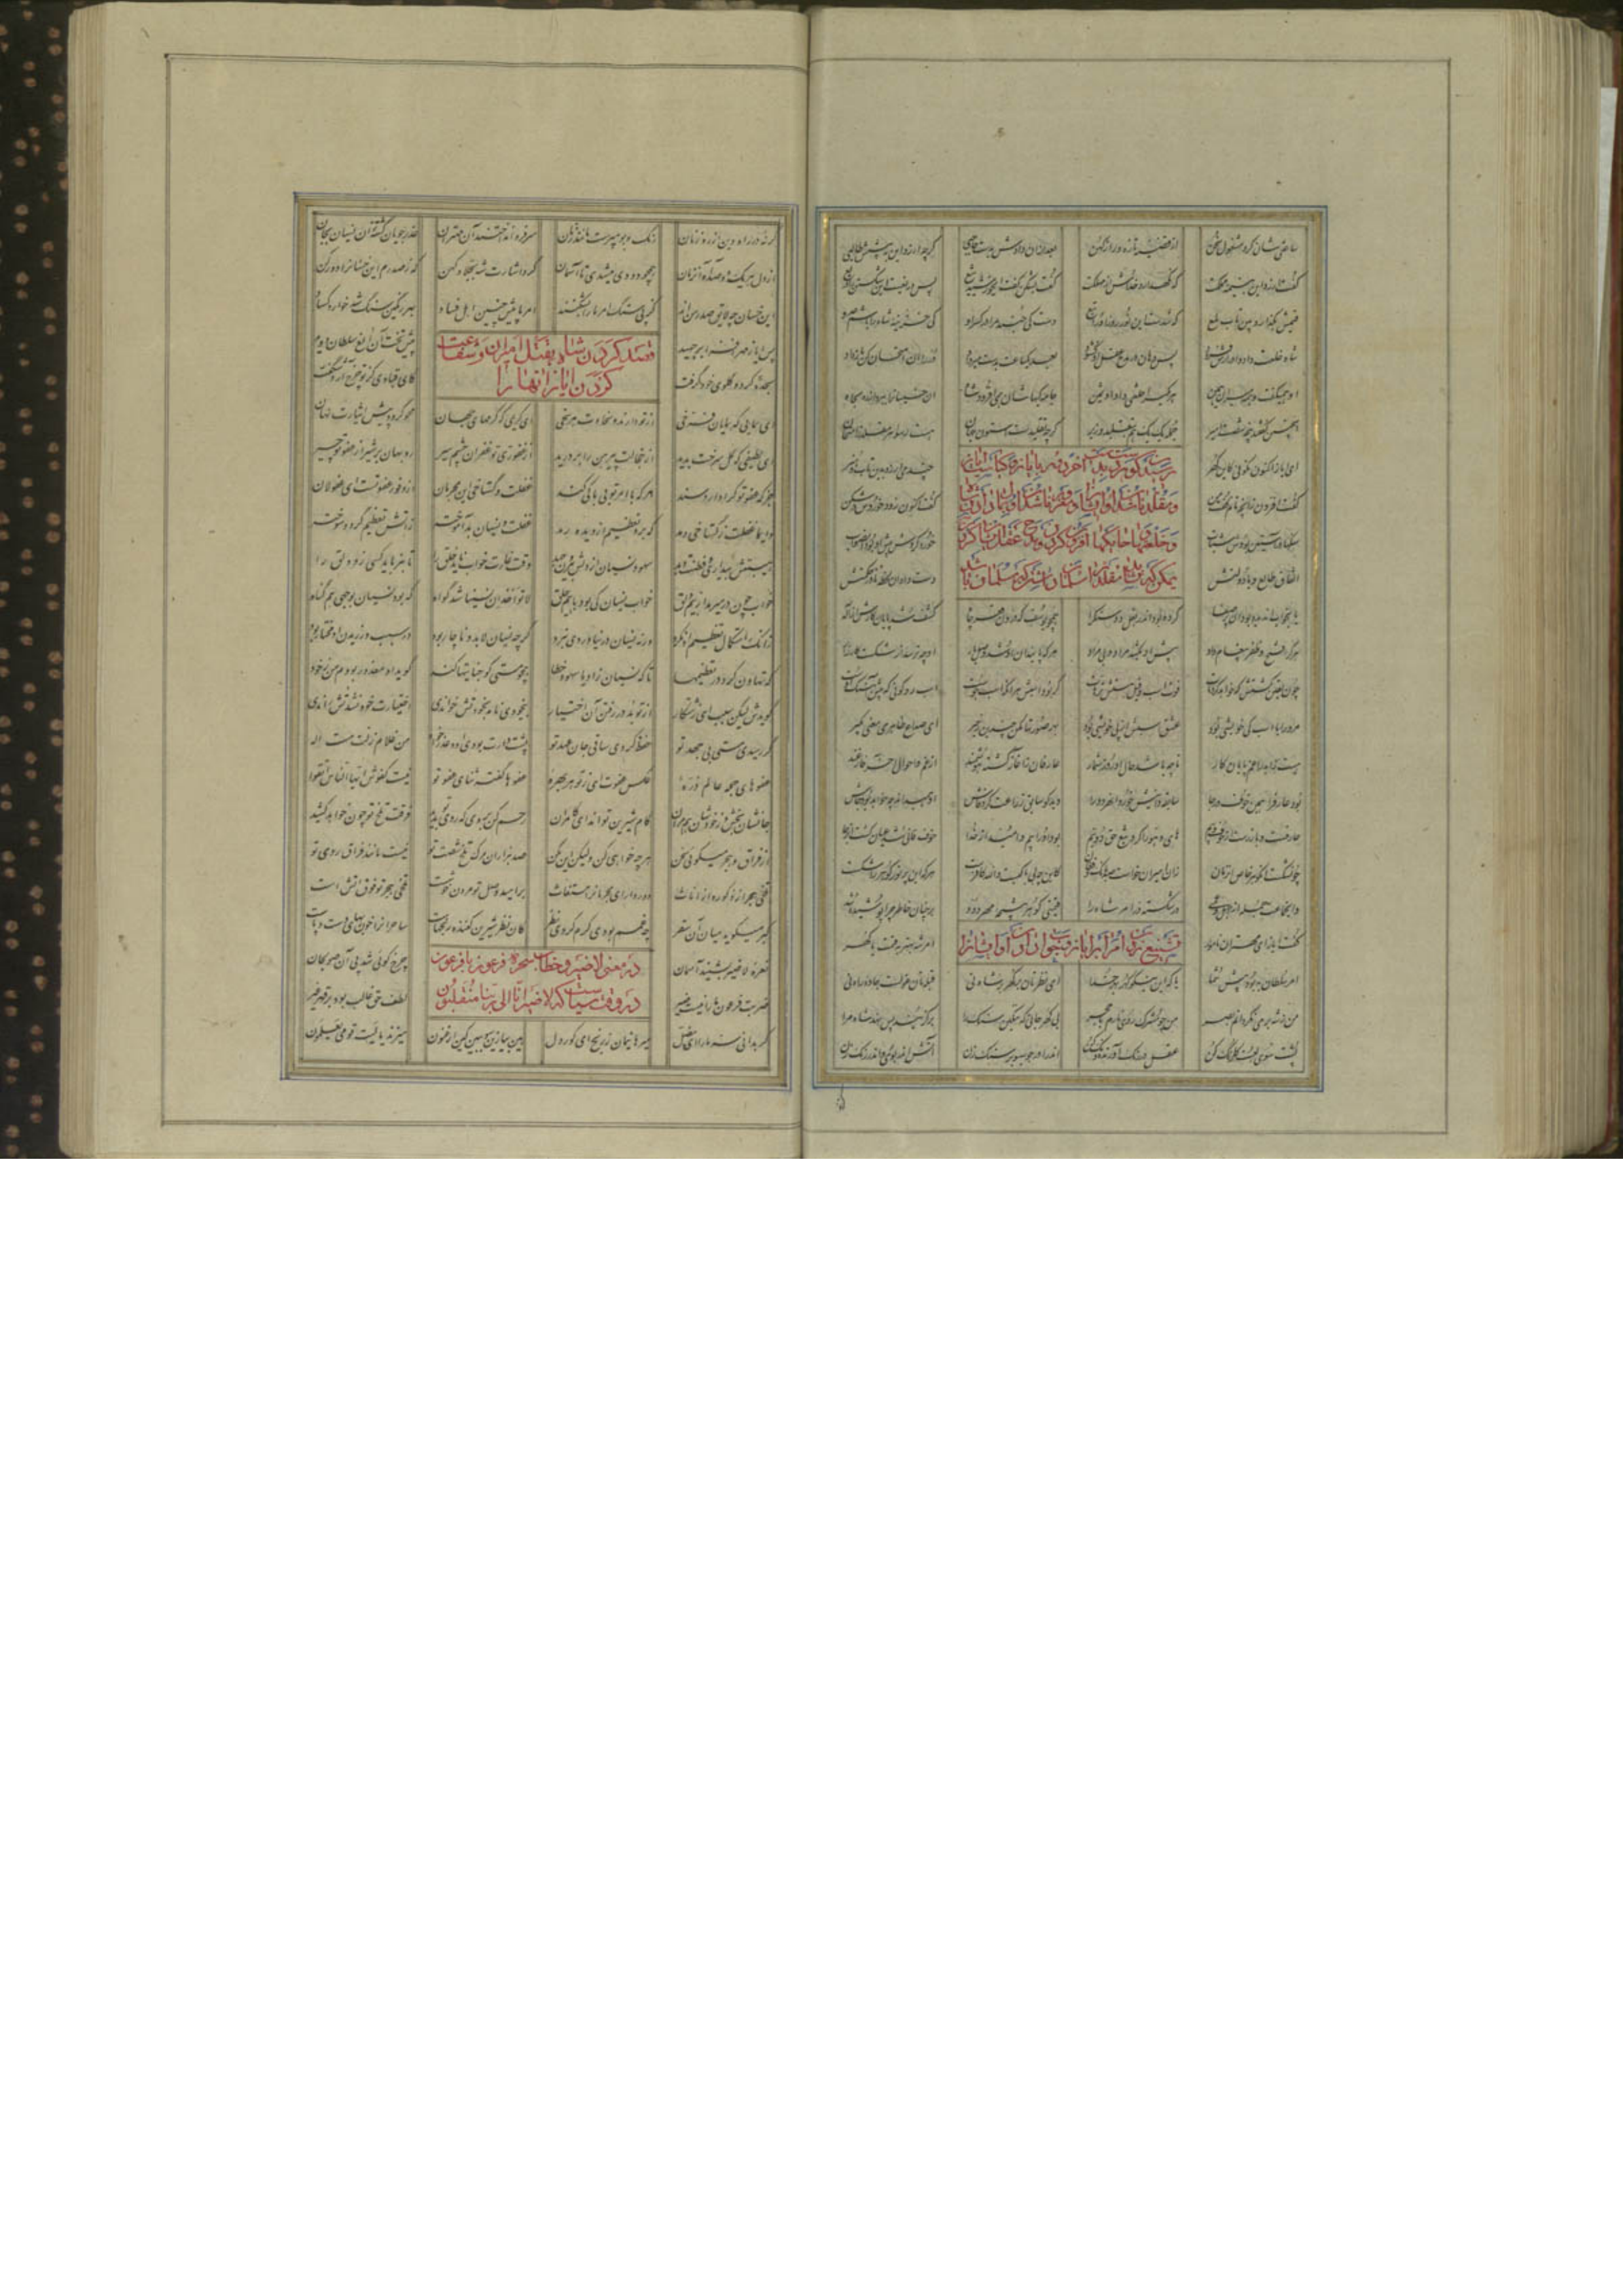 ساعتی شان کرد مشغول سخن از قضیه تازه و راز کهن بعد از آن دادش بدست حاجبی که چه ارزد این به پیش طالبی
گفت ارزد این به نیمه مملکت که نگهدارد خدایش از مهلکت گفت بشکن گفت ای خورشید تیغ بس دریغست این شکستن را دریغ
قیمتش بگذار و بین تاب و لمع که شدست این نور روز او را تبع دست کی جنبد مرا در کسر او کی خزینه شاه را باشم عدو
شاه خلعت داد و ادرارش فزود پس دهان در مدح عقل او گشود بعد یکساعت بدست میر داد در را آن امتحان کن باز داد
او همیگفت و همه میران همین هر یکی را خلعتی داد او ثمین جامگیهاشان همی افزود شاه آن خسیسانرا ببرد از ره بچاه
اینچنین گفتند پنجه شصت امیر جمله یک یک هم بتقلید وزیر گرچه تقلیدست استون جهان هست رسوا هر مقلد ز امتحان
رسیدن گوهر از دست بدست آخر دور بایاز و کیاست ایاز
و مقلد ناشدن او ایشانرا و مغرور ناشدن او بمال دادن شاه
و خلعتها و جامگیها افزون کردن و مدح عقل ایشان کردن
ای ایاز اکنون نگویی کاین گهر چند می ارزد بدین تاب و هنر
گفت افزون زانچه تانم گفت من گفت اکنون زود خردش در شکن
سنگها در آستین بودش شتاب خرد کردش پیش او بود آن صواب
اتفاق طالع با دولتش دست داد آن لحظه نادر حکمتش
یا بخواب این دیده بود آن پر صفا کرده بود اندر بغل دو سنگ را همچو یوسف که درون قعر چاه کشف شد پایان کارش از اله
هر کرا فتح و ظفر پیغام داد پیش او یک شد مراد و بی مراد هر که پایندان او شد وصل یار او چه ترسد از شکست کارزار
چون یقین گشتش که خواهد کرد مات فوت اسب و پیل هستش ترهات گر برد اسبش هر آنک اسب جوست اسب رو گو نی که پیش آهنگ اوست
مرد را با اسب کی خویشی بود عشق اسبش از پی پیشی بود بهر صورتها مکش چندین زحیر
هست زاهد را غم پایان کار تا چه باشد حال او روز شمار عارفان ز آغاز گشته هوشمند از غم و احوال آخر فارغند
بود عارف را همین خوف و رجا سابقه دانیش خورد آن هر دو را دید کو سابق زراعت کرد ماش او همی داند چه خواهد بود چاش
عارفست و باز رست از خوف و بیم های و هو را کرد تیغ حق دو نیم بود او را بیم و امید از خدا خوف فانی شد عیان گشت آن رجا
چون شکست او گوهر خاص آن زمان زان امیران خاست صد بانگ و فغان کاین چه بی باکیست والله کافرست هر که این پر نور گوهر را شکست
وان جماعت جمله از جهل و عمی در شکسته در امر شاه را قیمتی گوهر نتیجه مهر و ود بر چنان خاطر چرا پوشیده شد
تشنیع زدن امرا بر ایاز
گفت ایاز ای مهتران نامور امر شه بهتر بقیمت یا گهر
امر سلطان به بود پیش شما یا که این نیکو گهر بهر خدا ای نظرتان بر گهر بر شاه نی قبله تان غولست و جاده راه نی
من ز شه بر می نگردانم بصر من چو مشرک روی نارم در حجر بی گهر جانی که رنگین سنگ را برگزیند پس نهد شاه مرا
پشت سوی لعبت گلرنگ کن عقل در رنگ آورنده دنگ کن اندر آ در جو سبو بر سنگ زن آتش اندر بوی و اندر رنگ زن
گر نه در راه دین از ره زنان رنگ و بو مپرست مانند زنان سر فرو انداختند آن مهتران عذر جویان گشته زان نسیان بجان
از دل هر یک دو صد آه آن زمان همچو دودی میشدی تا آسمان کرد اشارت شه بجلاد کهن که ز صدرم این خسانرا دور کن
این خسان چه لایق صدر منند کز پی سنگ امر ما را بشکنند امر ما پیش چنین اهل فساد بهر رنگین سنگ شد خوار و کساد
قصد کردن شاه بقتل امیران و شفاعت
کردن ایاز آنها را
پس ایاز مهر افزا بر جهید پیش تخت آن الغ سلطان دوید
سجده کرد و گلوی خود گرفت کای قبادی کز تو چرخ آرد شگفت
ای همایی که همایان فرخی از تو دارند و سخاوت هر سخی ای کریمی که کرمهای جهان محو گردد پیش ایثارت نهان
ای لطیفی که گل سرخت بدید از خجالت پیرهن را بر درید از غفوری تو غفران چشم سیر روبهان بر شیر از عفو تو چیر
جز که عفو تو کرا دارد سند هر که با امر تو بی باکی کند غفلت و گستاخی این مجرمان از وفور عفو تست ای عفولان
دایما غفلت ز گستاخی دمد که برد تعظیم از دیده رمد غفلت و نسیان بد آموخته ز آتش تعظیم گردد سوخته
هیبتش بیداری و فطنت دهد سهو و نسیان از دلش بیرون جهد وقت غارت خواب ناید خلق را تا بنرباید کسی زو دلق را
خواب چون در میرمد از بیم دلق خواب نسیان کی بود با بیم حلق لا تؤاخذ ان نسینا شد گواه که بود نسیان بوجهی هم گناه
زانک استکمال تعظیم او نکرد ورنه نسیان در نیاوردی نبرد گرچه نسیان لابد و ناچار بود در سبب ورزیدن او مختار بود
که تهاون کرد در تعظیمها تا که نسیان زاد یا سهو و خطا همچو مستی کو جنایتها کند گوید او معذور بودم من ز خود
گویدش لیکن سبب ای زشتکار از تو بد در رفتن آن اختیار بیخودی نامد بخود تش خواندی اختیارت خود نشد تش راندی
گر رسیدی مستی بی جهد تو حفظ کردی ساقی جان عهد تو پشت دارت بودی او و عذر خواه من غلام زلت مست اله
عفوهای جمله عالم ذره عکس عفوت ای ز تو هر بهره عفوها گفته ثنای عفو تو نیست کفوش ایها الناس اتقوا
جانشان بخش و ز خودشان هم مران کام شیرین تواند ای کامران رحم کن بر وی که روی تو بدید فرقت تلخ تو چون خواهد کشید
از فراق و هجر میگویی سخن هر چه خواهی کن ولیکن این مکن صد هزاران مرگ تلخ شصت تو نیست مانند فراق روی تو
تلخی هجر از ذکور و از اناث دور دار ای مجرمانرا مستغاث بر امید وصل تو مردن خوشست تلخی هجر تو فوق آتش است
گبر میگوید میان آن سقر چه غمم بودی گرم کردی نظر کان نظر شیرین کننده رنجهاست ساحرانرا خونبهای دست و پاست
در معنی لاضیر و خطاب سحره فرعون با فرعون
در وقت سیاست که لاضیر انا الی ربنا منقلبون
نعره لاضیر بشنید آسمان چرخ گویی شد پی آن صولجان
ضربت فرعون ما را نیست ضیر لطف حق غالب بود بر قهر غیر
گر بدانی سر ما را ای مضل میرهانیمان ز رنج ای کور دل هین بیا زین سو ببین کین ارغنون میزند یا لیت قومی یعلمون